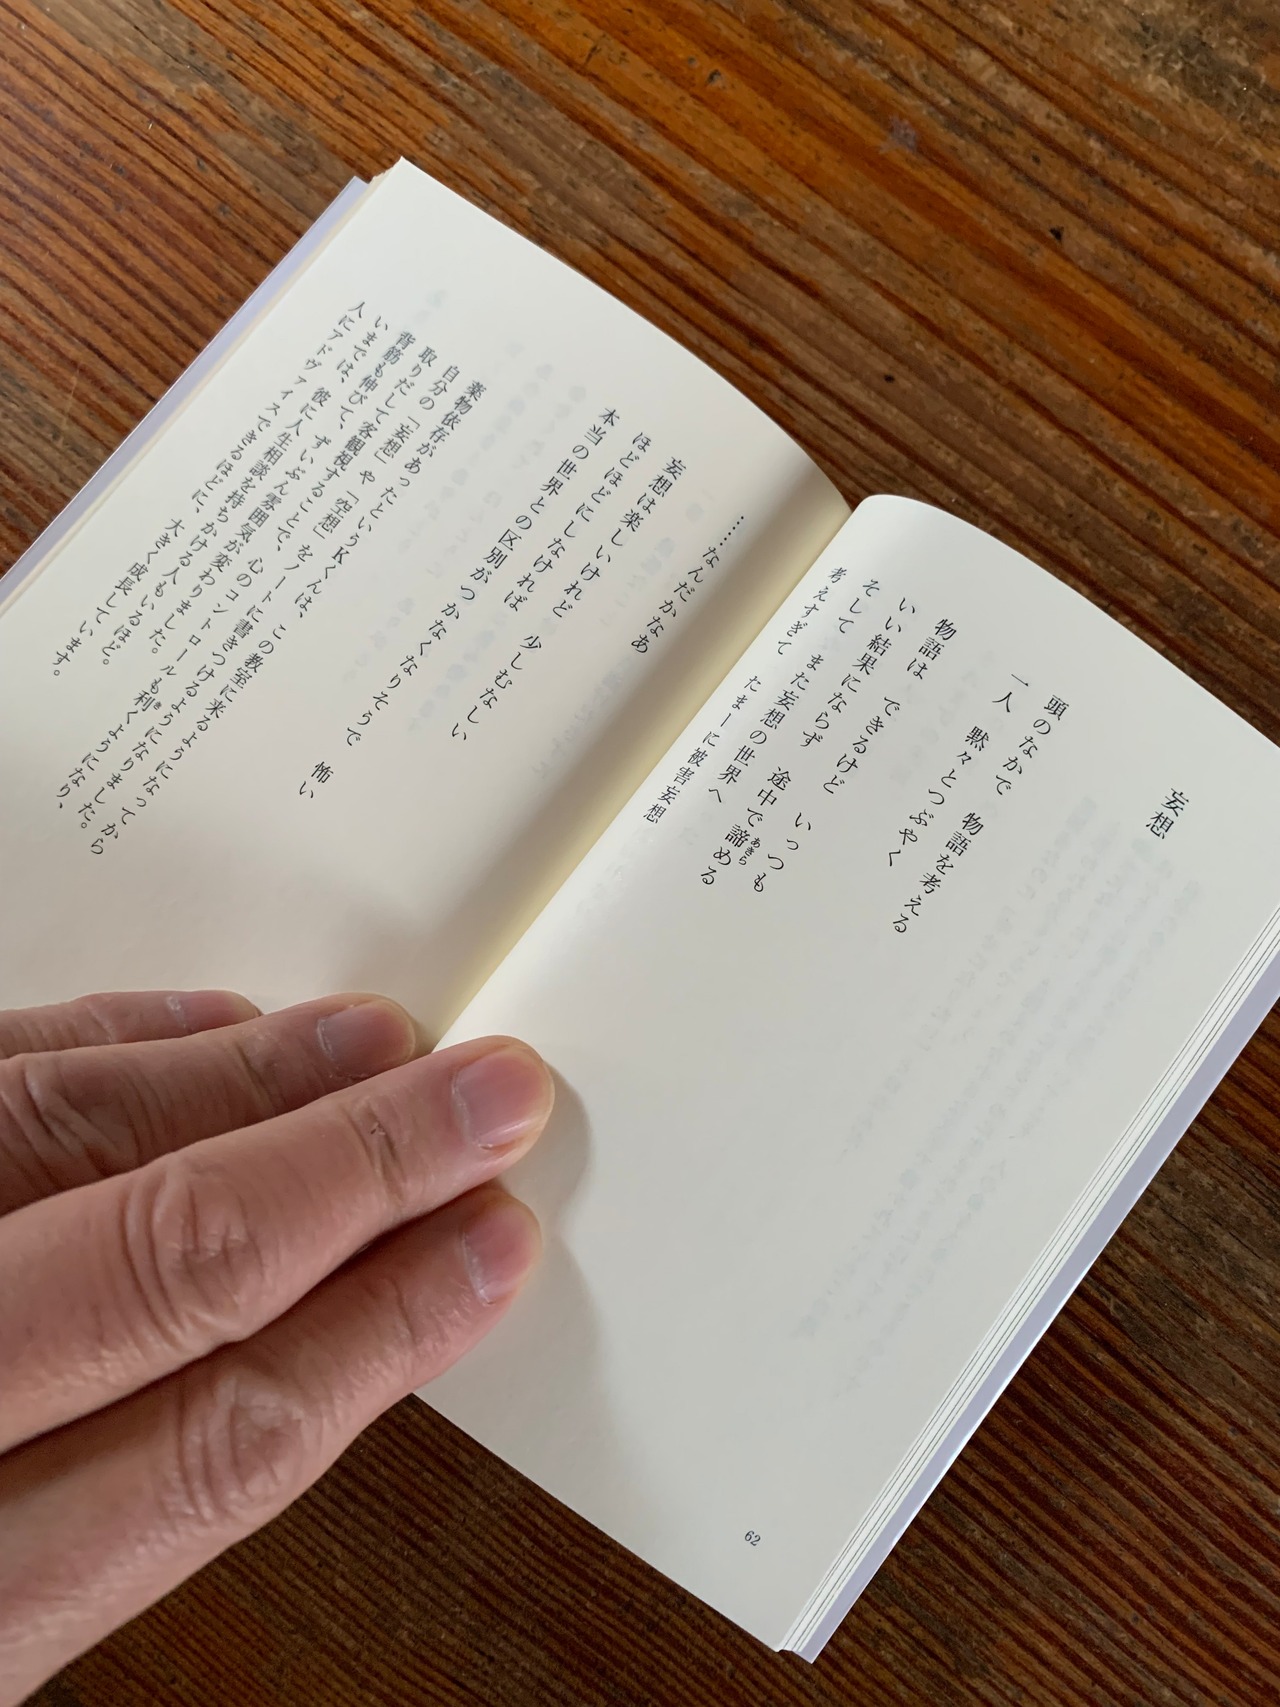 妄想
頭のなかで 物語を考える
一人 黙々とつぶやく
物語は できるけど いっつも
いい結果にならず 途中で諦める
あきら
そして また妄想の世界へ
考えすぎて たまーに被害妄想
62
……なんだかなぁ
妄想は楽しいけれど 少しむなしい
ほどほどにしなければ
本当の世界との区別がつかなくなりそうで 怖い
薬物依存があったというKくんは、この教室に来るようになってから
自分の「妄想」や「空想」をノートに書きつけるようになりました。
取りだして客観視することで、心のコントロールも利くようになり、
き
背筋も伸びて、ずいぶん雰囲気が変わりました。
いまでは、彼に人生相談を持ちかける人もいるほど。
人にアドヴァイスできるほどに、大きく成長しています。